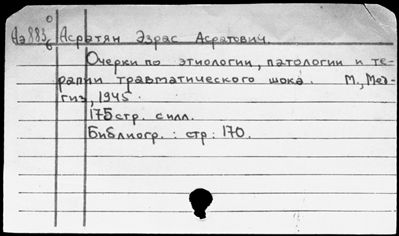 Аэ 883
Асратян Эзрас Асратович.
Очерки по этиологии, патологии и те-
рапии травматического шока. М., Мед-
гиз, 1945.
175 стр. с илл.
Библиогр.: стр: 170.